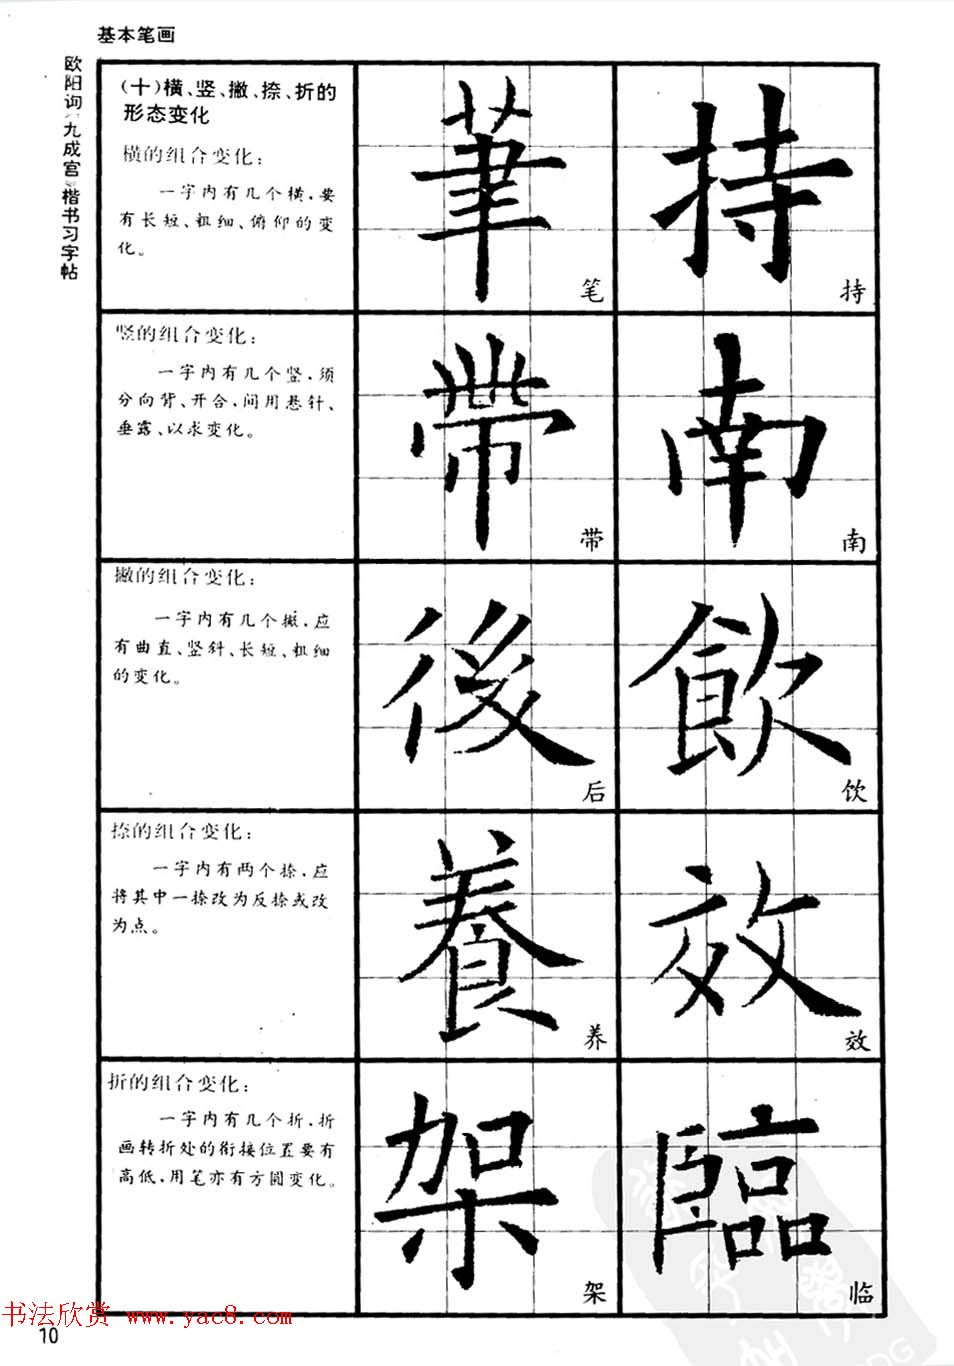 基本笔画
欧阳询《九成宫》楷书习字帖
(十)横、竖、撇、捺、折的
形态变化
横的组合变化:
一字内有几个横,要
有长短、粗细、俯仰的变
化。
筆
笔
持
持
竖的组合变化:
一字内有几个竖,须
分向背、开合,间用悬针、
垂露、以求变化。
帶
带
南
南
撇的组合变化:
一字内有几个撇,应
有曲直、竖斜、长短、粗细
的变化。
後
后
飲
饮
捺的组合变化:
一字内有两个捺,应
将其中一捺改为反捺或改
为点。
養
养
效
效
折的组合变化:
一字内有几个折,折
画转折处的衔接位置要有
高低,用笔亦有方圆变化。
架
架
臨
临
书法欣赏 www.yac8.com
10